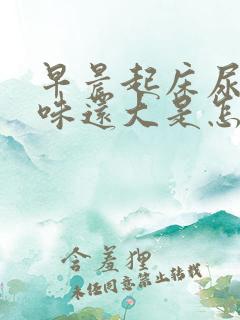 早晨起床尿
味還大是怎
含羞狸
未经同意禁止转载